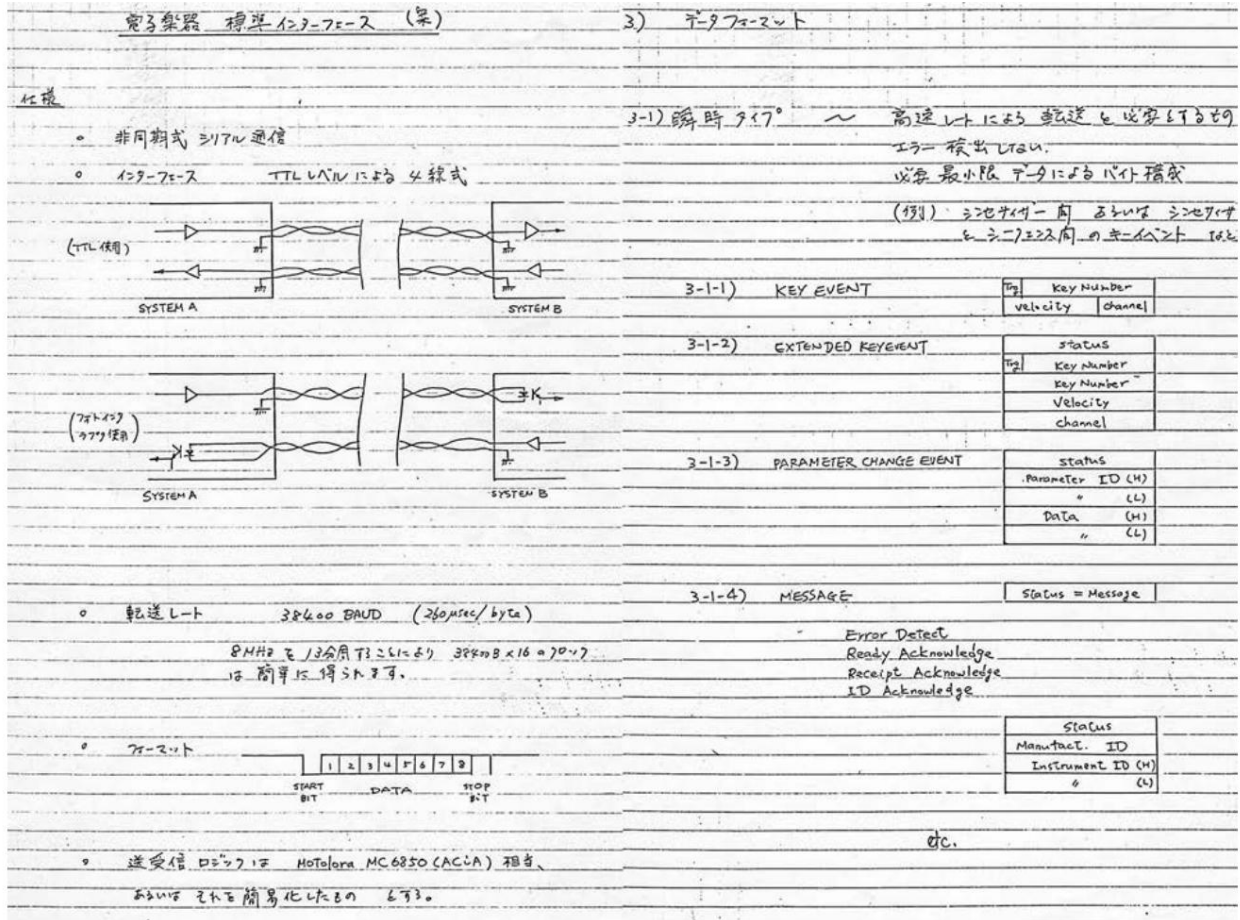 電子楽器 標準インターフェース (案)
仕様
。 非同期式 シリアル通信
。 インターフェース TTLレベルによる 4線式
(TTL使用)
SYSTEM A
SYSTEM B
(フォトインタラプタ使用)
SYSTEM A
SYSTEM B
。 転送レート 38400 BAUD (260μsec/byte)
8MHzを 13分周することにより 38400B×16のクロック
は 簡単に 得られます。
。 フォーマット
1 2 3 4 5 6 7 8
START BIT DATA STOP BIT
。 送受信 ロジックは Motolora MC6850 (ACiA) 相当、
あるいは それを 簡易化したもの とする。
3) データフォーマット
3-1) 瞬時タイプ ~ 高速レートによる 転送を必要とするもの
エラー検出しない.
必要最小限 データによる バイト構成
(例) シンセサイザー間 あるいは シンセサイザ
と シーケンス間 の キーイベント など
3-1-1) KEY EVENT
Trg Key Number
velocity channel
3-1-2) EXTENDED KEYEVENT
status
Trg Key Number
Key Number
Velocity
channel
3-1-3) PARAMETER CHANGE EVENT
status
Parameter ID (H)
〃 (L)
Data (H)
〃 (L)
3-1-4) MESSAGE
Status = Message
Error Detect
Ready Acknowledge
Receipt Acknowledge
ID Acknowledge
Status
Manufact. ID
Instrument ID (H)
〃 (L)
etc.